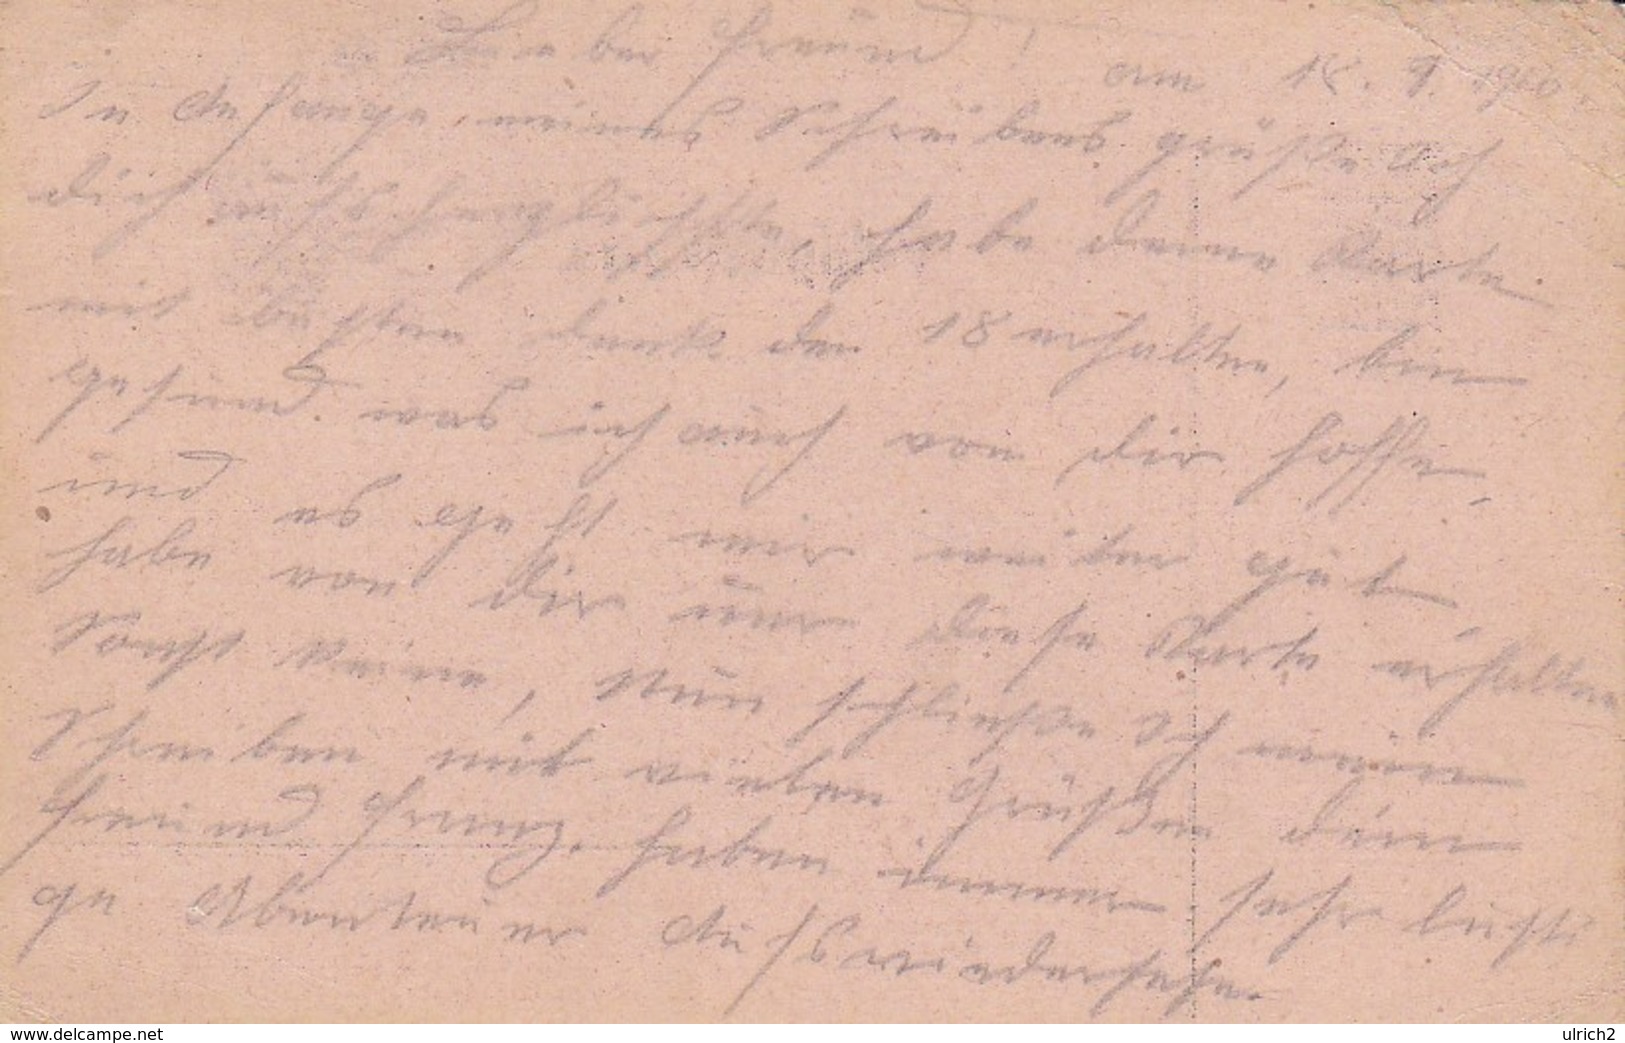 Lieber Freund!
am 18. 9. 19
Im Anfange, meines Schreibens grüße ich
dich aufs herzlichste, habe deine Karte
mit besten dank den 18 erhalten, bin
gesund. was ich auch von dir hoffe,
und es geht mir weiter gut,
habe von dir nur diese Karte erhalten
sonst keine, Nun schließe Ich mein
Schreiben mit vielen Grüßen dein
Freund Franz. haben immer sehr lusti
ge Abenteuer Aufswiedersehn.
www.delcampe.net
ulrich2